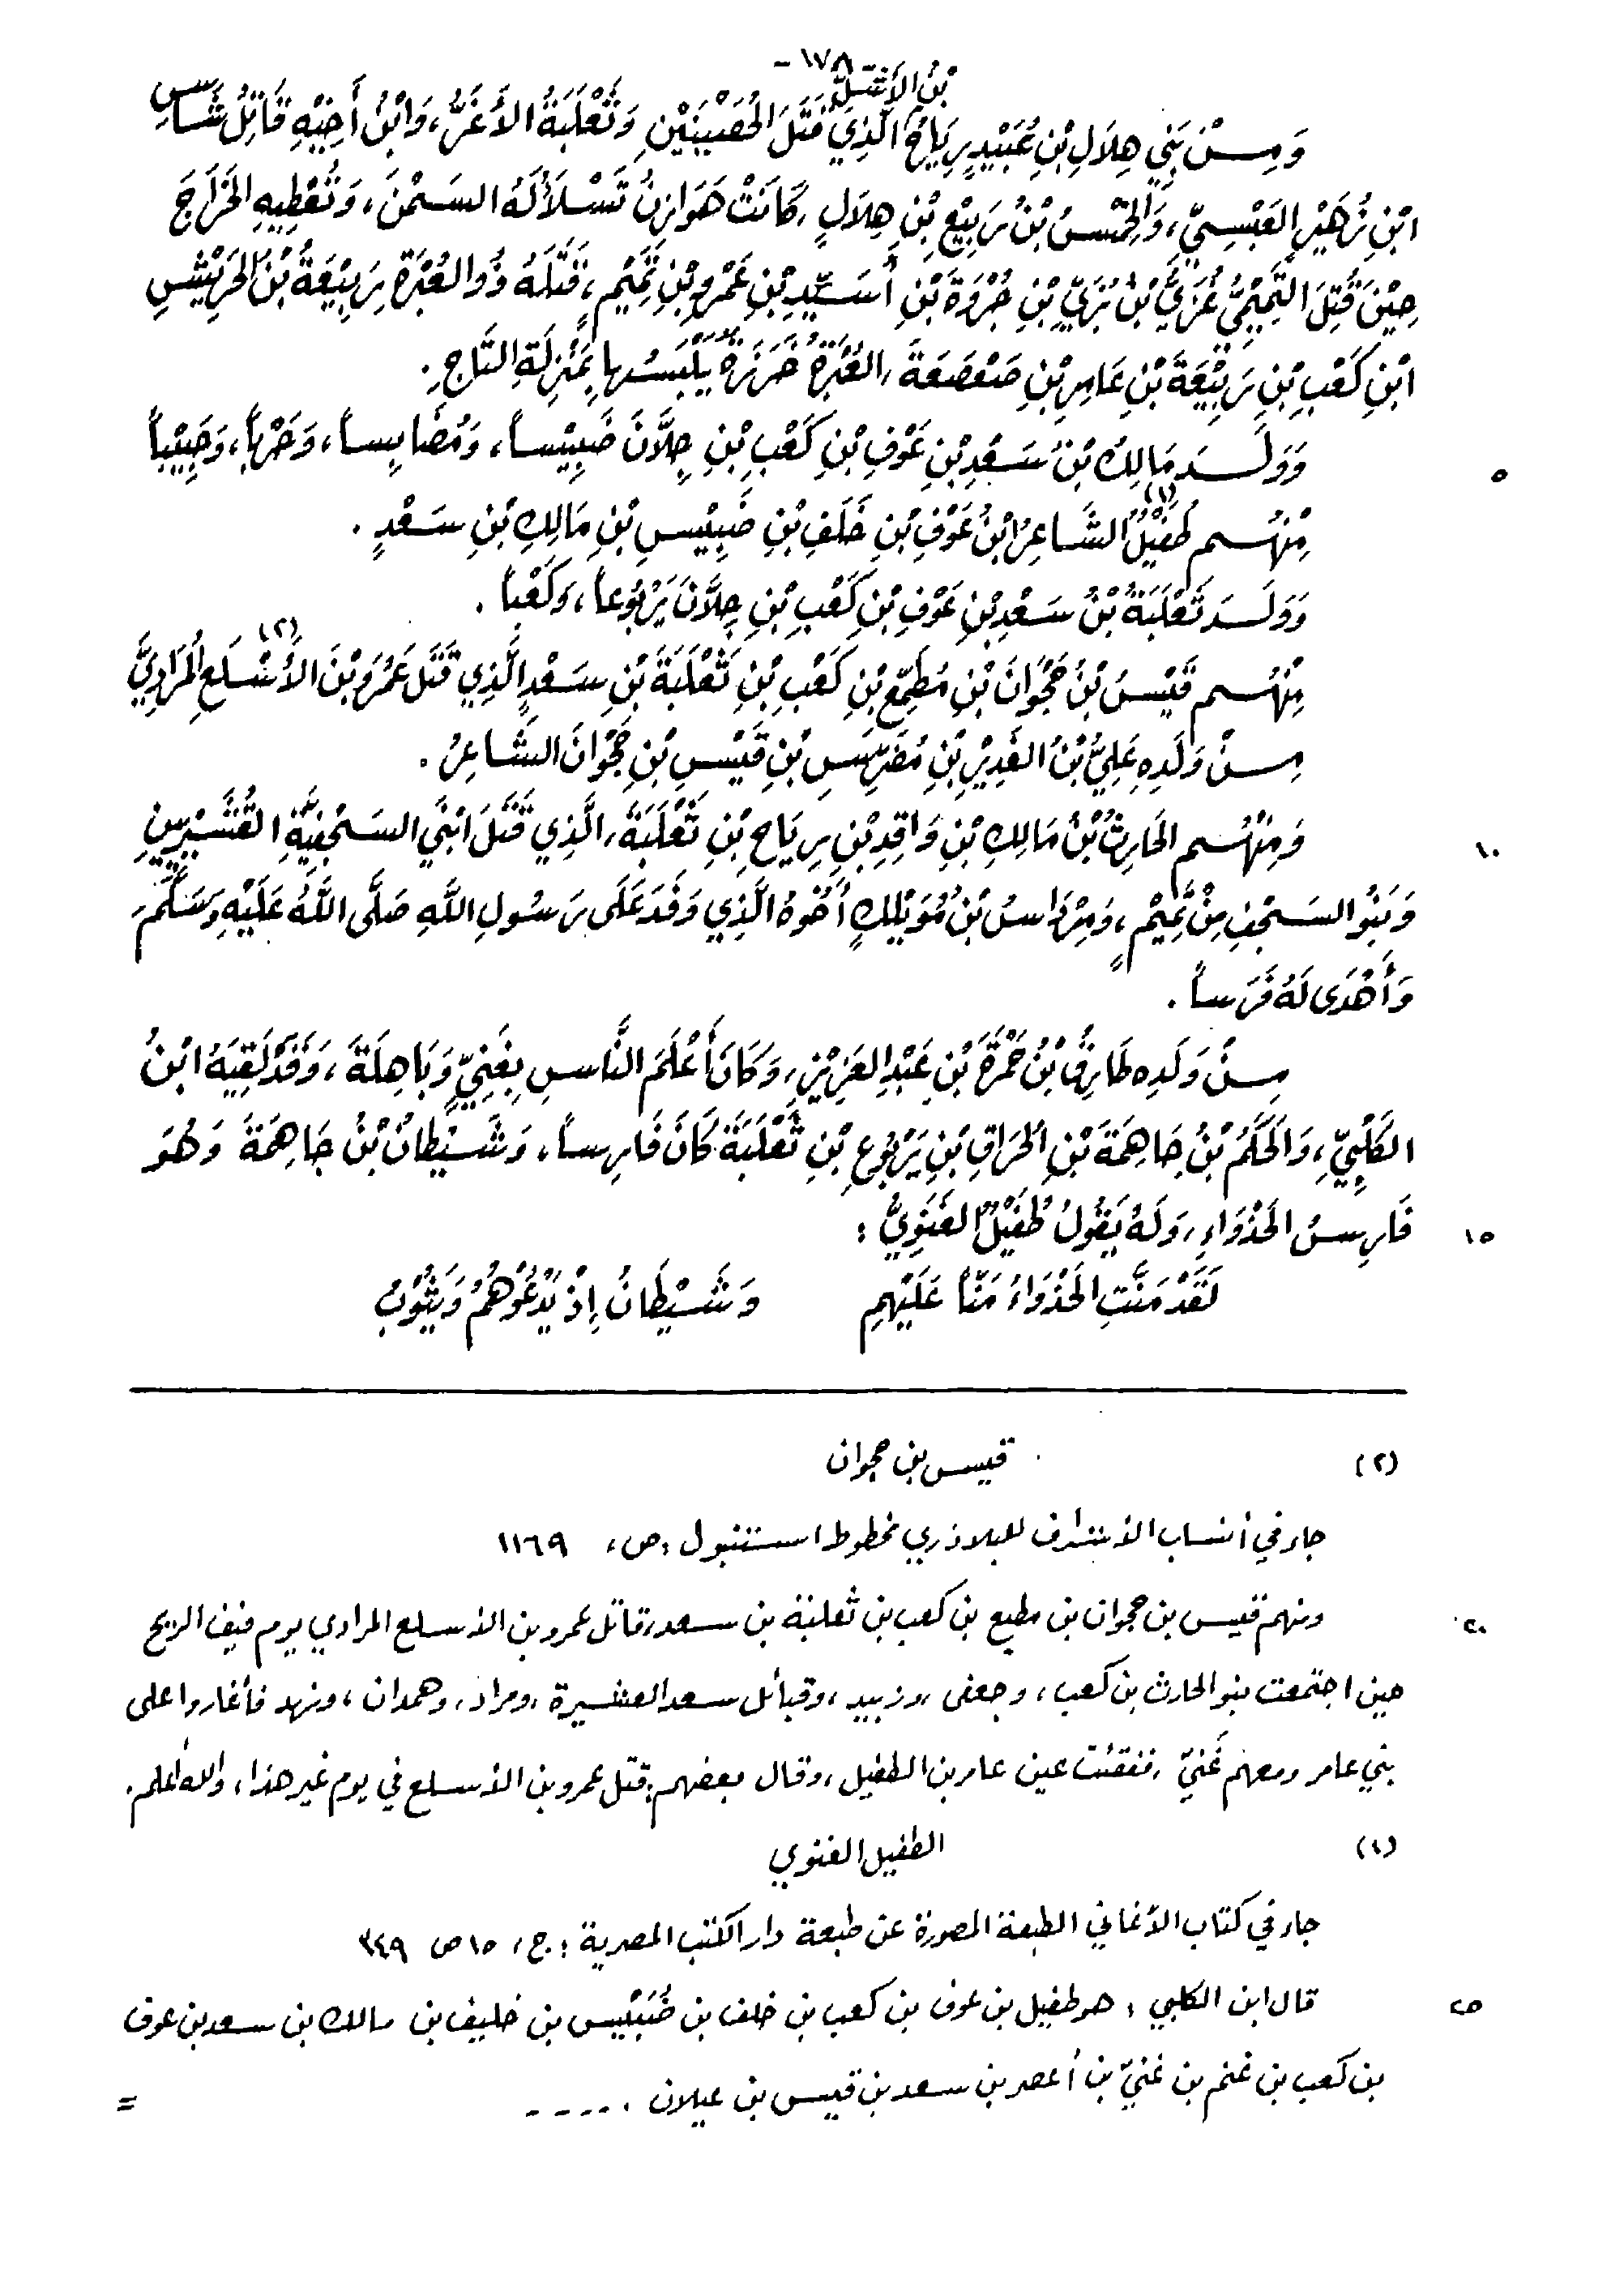 - ١٧٨ -
بْنُ الأَشَلِّ
وَمِنْ بَنِي هِلَالِ بْنِ عُبَيْدٍ رِيَاحُ الَّذِي قَتَلَ الحُصَيْنَيْنِ وَثَعْلَبَةُ الأَغَرُّ، وَابْنُ أَخِيْهِ قَاتِلُ شَأْسِ
ابْنِ زُهَيْرٍ العَبْسِيِّ، وَالحِمْسُ بْنُ رَبِيْعِ بْنِ هِلَالٍ، كَانَتْ هَوَازِنُ تَسْلَأُ لَهُ السَمْنَ، وَتُعْطِيهِ الخَرَاجَ
حِيْنَ قُتِلَ التَّمِيْمِيُّ عُزَيُّ بْنُ بُزَيِّ بْنِ جُرْوَةَ بْنِ أُسَيِّدِ بْنِ عَمْرِو بْنِ تَمِيْمٍ، قَتَلَهُ ذُو العُبْرَةِ رَبِيْعَةُ بْنُ الحَرِيْشِ
ابْنِ كَعْبِ بْنِ رَبِيْعَةَ بْنِ عَامِرِ بْنِ صَعْصَعَةَ، العُبْرَةُ خَرَزَةٌ يَلْبَسُها بِمَنْزِلَةِ التَّاجِ.
وَوَلَدَ مَالِكُ بْنُ سَعْدِ بْنِ عَوْفِ بْنِ كَعْبِ بْنِ جِلَّانَ ضَبِيْساً، وَمُضَابِساً، وَحَرْباً، وَحَبِيْباً
مِنْهُم طُفَيْلٌ (١) الشَّاعِرُ ابْنُ عَوْفِ بْنِ خَلَفِ بْنِ ضَبِيْسِ بْنِ مَالِكِ بْنِ سَعْدٍ.
وَوَلَدَ ثَعْلَبَةُ بْنُ سَعْدِ بْنِ عَوْفِ بْنِ كَعْبِ بْنِ جِلَّانَ يَرْبُوعاً، وَكَعْباً.
مِنْهُم قَيْسُ بْنُ جَحْوَانَ بْنِ مُطِيْعِ بْنِ كَعْبِ بْنِ ثَعْلَبَةَ بْنِ سَعْدٍ الَّذِي قَتَلَ عَمْرَو بْنَ الأَسْلَعِ المُرَادِيَّ (٢)
مِنْ وَلَدِهِ عَلِيُّ بْنُ الغَدِيْرِ بْنِ مُضَرِّسِ بْنِ قَيْسِ بْنِ جَحْوَانَ الشَاعِرُ.
وَمِنْهُم الحَارِثُ بْنُ مَالِكِ بْنِ وَاقِدِ بْنِ رِيَاحِ بْنِ ثَعْلَبَةَ، الَّذِي قَتَلَ ابْنَيِ السَجْفِيَّةِ القُشَيْرِيَّيْنِ
وَبَنُو السَجْفِ مِنْ تَمِيْمٍ، وَمِرْدَاسُ بْنُ مُوَيْلِكٍ أَخُوهُ الَّذِي وَفَدَ عَلَى رَسُولِ اللَّهِ صَلَّى اللَّهُ عَلَيْهِ وَسَلَّمَ
وَأَهْدَى لَهُ فَرَساً.
مِنْ وَلَدِهِ طَارِقُ بْنُ حَمْزَةَ بْنِ عَبْدِ العَزِيْزِ، وَكَانَ أَعْلَمَ النَّاسِ بِغَنِيٍّ وَبَاهِلَةَ، وَقَدْ لَقِيَهُ ابْنُ
الكَلْبِيِّ، وَالحَكَمُ بْنُ جَاهِمَةَ بْنِ الحُرَاقِ بْنِ يَرْبُوعِ بْنِ ثَعْلَبَةَ كَانَ فَارِساً، وَشَيْطانُ بْنُ جَاهِمَةَ وَهُوَ
فَارِسُ الخَذْوَاءِ، وَلَهُ يَقُولُ طُفَيْلٌ الغَنَوِيُّ:
لَقَدْ مَنَّتِ الخَذْوَاءُ مَنّاً عَلَيْهِمِ    وَشَيْطَانُ إِذْ يَدْعُوهُمُ وَيُثَوِّبُ
(٢) قيس بن جحوان
جاء في أنساب الأشراف للبلاذري مخطوط استنبول: ص، ١١٦٩
ومنهم قيس بن جحوان بن مطيع بن كعب بن ثعلبة بن سعد، قاتل عمرو بن الأسلع المرادي يوم فيف الريح
حين اجتمعت بنو الحارث بن كعب، وجعفى، وزبيد، وقبائل سعد العشيرة، ومراد، وهمدان، ونهد فأغاروا على
بني عامر ومعهم غَنِيّ، ففقئت عين عامر بن الطفيل، وقال بعضهم: قتل عمرو بن الأسلع في يوم غير هذا، والله أعلم.
(١) الطفيل الغنوي
جاء في كتاب الأغاني الطبعة المصورة عن طبعة دار الكتب المصرية: ج، ١٥ ص ٣٤٩
قال ابن الكلبي: هو طفيل بن عوف بن كعب بن خلف بن ضُبَيْس بن خليف بن مالك بن سعد بن عوف
بن كعب بن غنم بن غنيّ بن أعصر بن سعد بن قيس بن عيلان. ----
=
٥
١٠
١٥
٢٠
٢٥